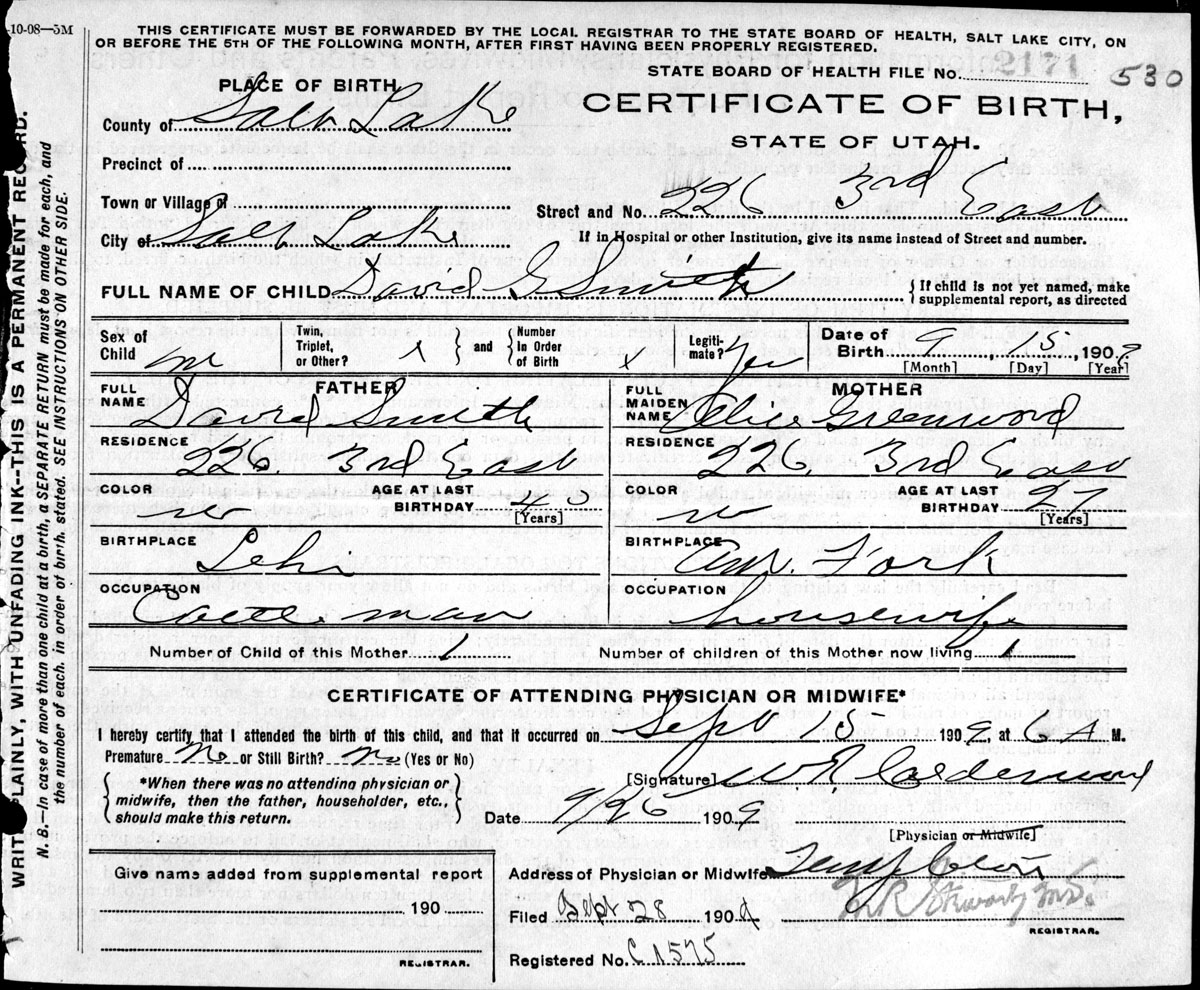 -10-08—5M
THIS CERTIFICATE MUST BE FORWARDED BY THE LOCAL REGISTRAR TO THE STATE BOARD OF HEALTH, SALT LAKE CITY, ON
OR BEFORE THE 5TH OF THE FOLLOWING MONTH, AFTER FIRST HAVING BEEN PROPERLY REGISTERED.
STATE BOARD OF HEALTH FILE No. 2171 530
PLACE OF BIRTH
CERTIFICATE OF BIRTH,
STATE OF UTAH.
County of Salt Lake
Precinct of
Town or Village of
Street and No. 226 3rd East
City of Salt Lake
If in Hospital or other Institution, give its name instead of Street and number.
FULL NAME OF CHILD David G Smith { If child is not yet named, make
supplemental report, as directed
Sex of Child m
Twin, Triplet, or Other? } and { Number In Order of Birth
Legiti-mate? Yes
Date of Birth 9, 15, 1909
[Month] [Day] [Year]
FATHER
FULL NAME David Smith
MOTHER
FULL MAIDEN NAME Alice Greenwood
RESIDENCE 226. 3rd East
RESIDENCE 226. 3rd East
COLOR w AGE AT LAST BIRTHDAY [Years]
COLOR w AGE AT LAST BIRTHDAY 27 [Years]
BIRTHPLACE Lehi
BIRTHPLACE Am. Fork
OCCUPATION man
OCCUPATION housewife
Number of Child of this Mother 1 Number of children of this Mother now living 1
CERTIFICATE OF ATTENDING PHYSICIAN OR MIDWIFE*
I hereby certify that I attended the birth of this child, and that it occurred on Sept 15 1909, at 6 A M.
Premature No or Still Birth? No (Yes or No)
{ *When there was no attending physician or
midwife, then the father, householder, etc.,
should make this return. }
[Signature] Calderwood
Date 9/26 1909
[Physician or Midwife]
Address of Physician or Midwife
Give name added from supplemental report
190
Filed Sept 28 1909
M.D.
REGISTRAR.
REGISTRAR.
Registered No. C 1575
WRITE PLAINLY, WITH UNFADING INK--THIS IS A PERMANENT RECORD.
N. B.—In case of more than one child at a birth, a SEPARATE RETURN must be made for each, and
the number of each. in order of birth. stated. SEE INSTRUCTIONS ON OTHER SIDE.